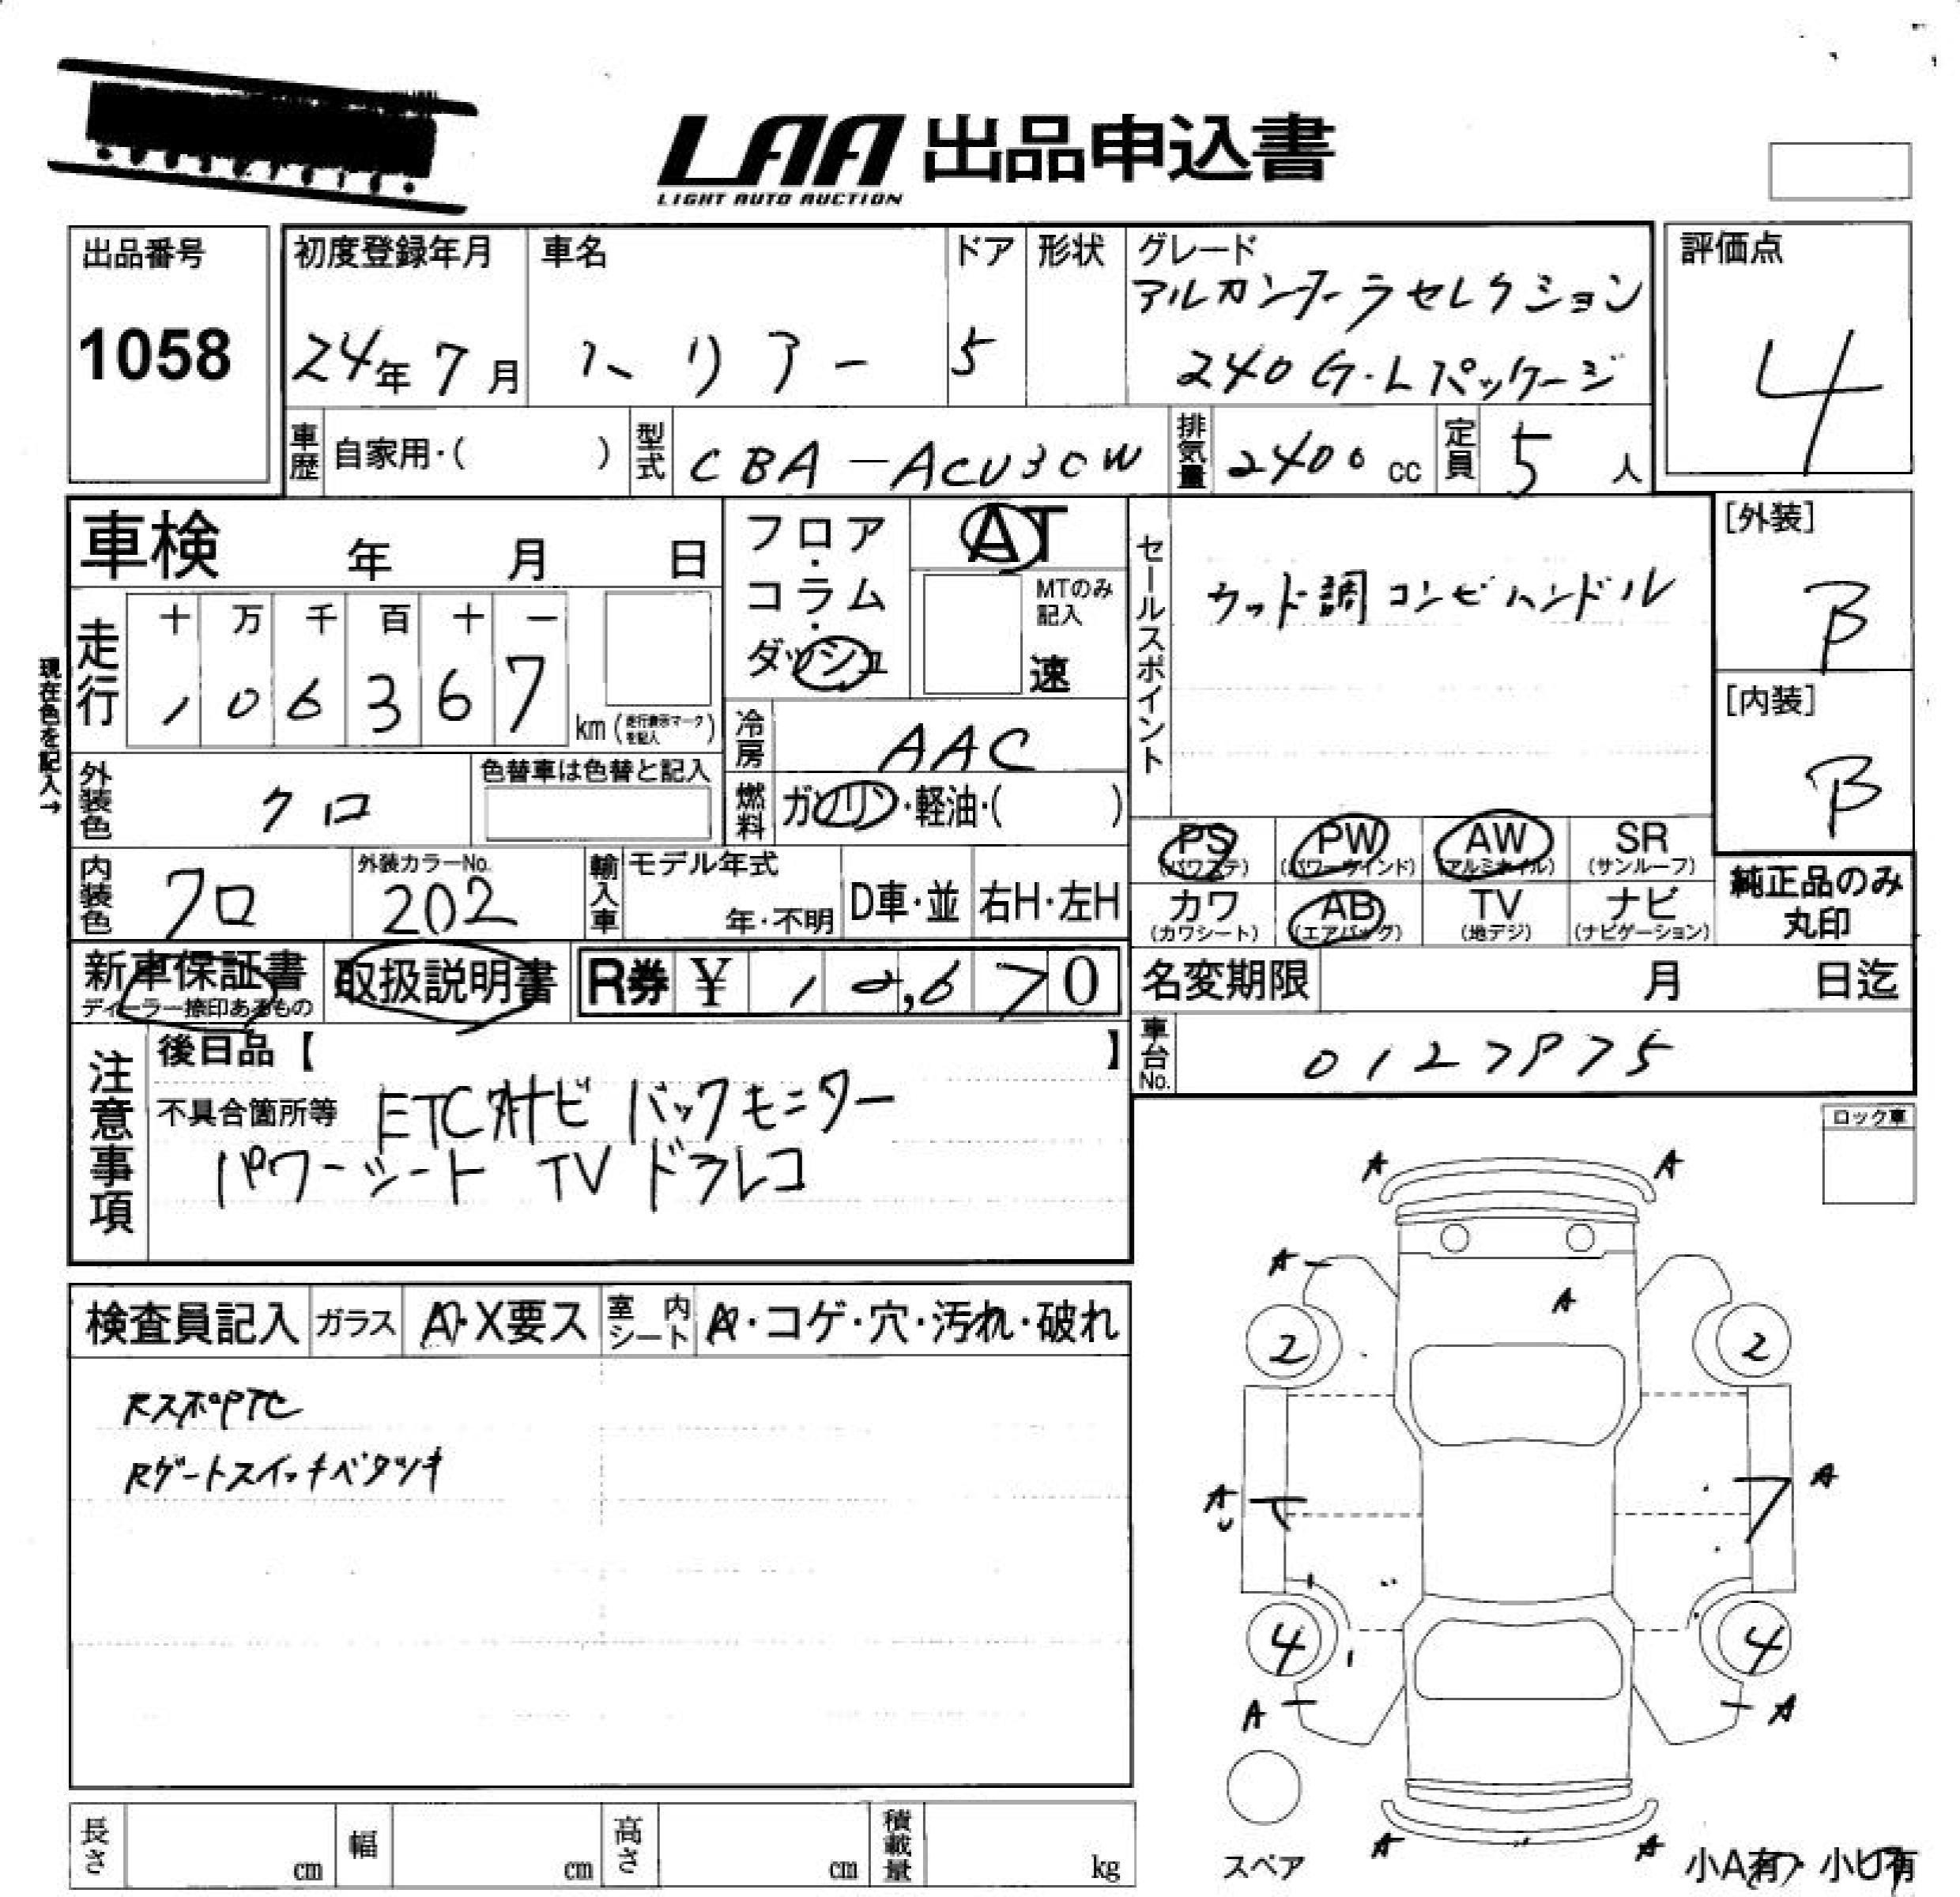 LAA 出品申込書
LIGHT AUTO AUCTION
出品番号
1058
初度登録年月
24年 7月
車名
ハリアー
ドア
5
形状
グレード
アルカンターラセレクション
240G・Lパッケージ
評価点
4
車歴 自家用・( )
型式 CBA-ACU30W
排気量 2400 cc
定員 5 人
車検 年 月 日
フロア・コラム・ダッシュ
AT
MTのみ記入
速
セールスポイント
ウッド調コンビハンドル
[外装]
B
[内装]
B
現在色を記入→
走行
十 万 千 百 十 一
1 0 6 3 6 7
km (走行表示マークを記入)
冷房 AAC
外装色 クロ
色替車は色替と記入
燃料 ガソリン・軽油・( )
内装色 クロ
外装カラーNo.
202
輸入車
モデル年式
年・不明
D車・並
右H・左H
PS (パワステ)
PW (パワーウインド)
AW (アルミホイル)
SR (サンルーフ)
カワ (カワシート)
AB (エアバック)
TV (地デジ)
ナビ (ナビゲーション)
純正品のみ丸印
新車保証書
ディーラー捺印あるもの
取扱説明書
R券 ¥ 12,670
名変期限 月 日迄
車台No.
注意事項
後日品【 】
不具合箇所等 ETC 社外ナビ バックモニター
パワーシート TV ドラレコ
ロック車
検査員記入
ガラス
A・X要ス
室内シート
A・コゲ・穴・汚れ・破れ
RスポP下セ
Rゲートスイッチベタツキ
A A
A
A
2 2
A A
4 4
A A
スペア
A A
小A有・小U有
長さ cm
幅 cm
高さ cm
積載量 kg